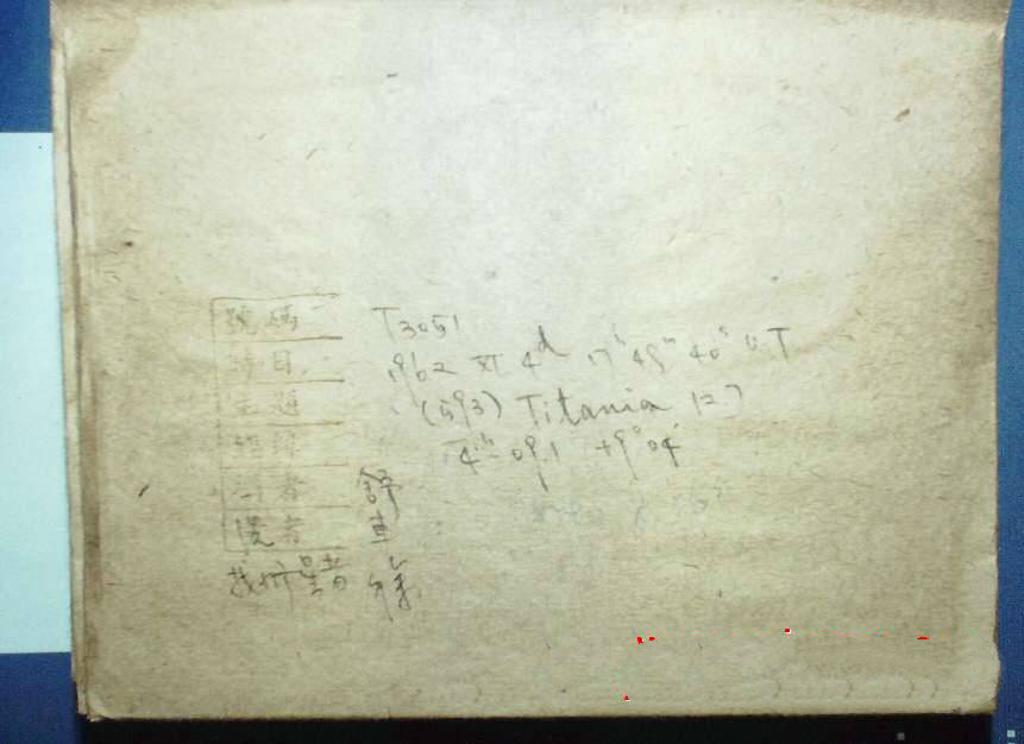 號碼 T3051
時日 1962 XI 4ᵈ 17ʰ 45ᵐ 40ˢ U.T
主題 (593) Titania 12.7
4ʰ 09.1 +9°04'
者 舒
者 車
找新星者 徐